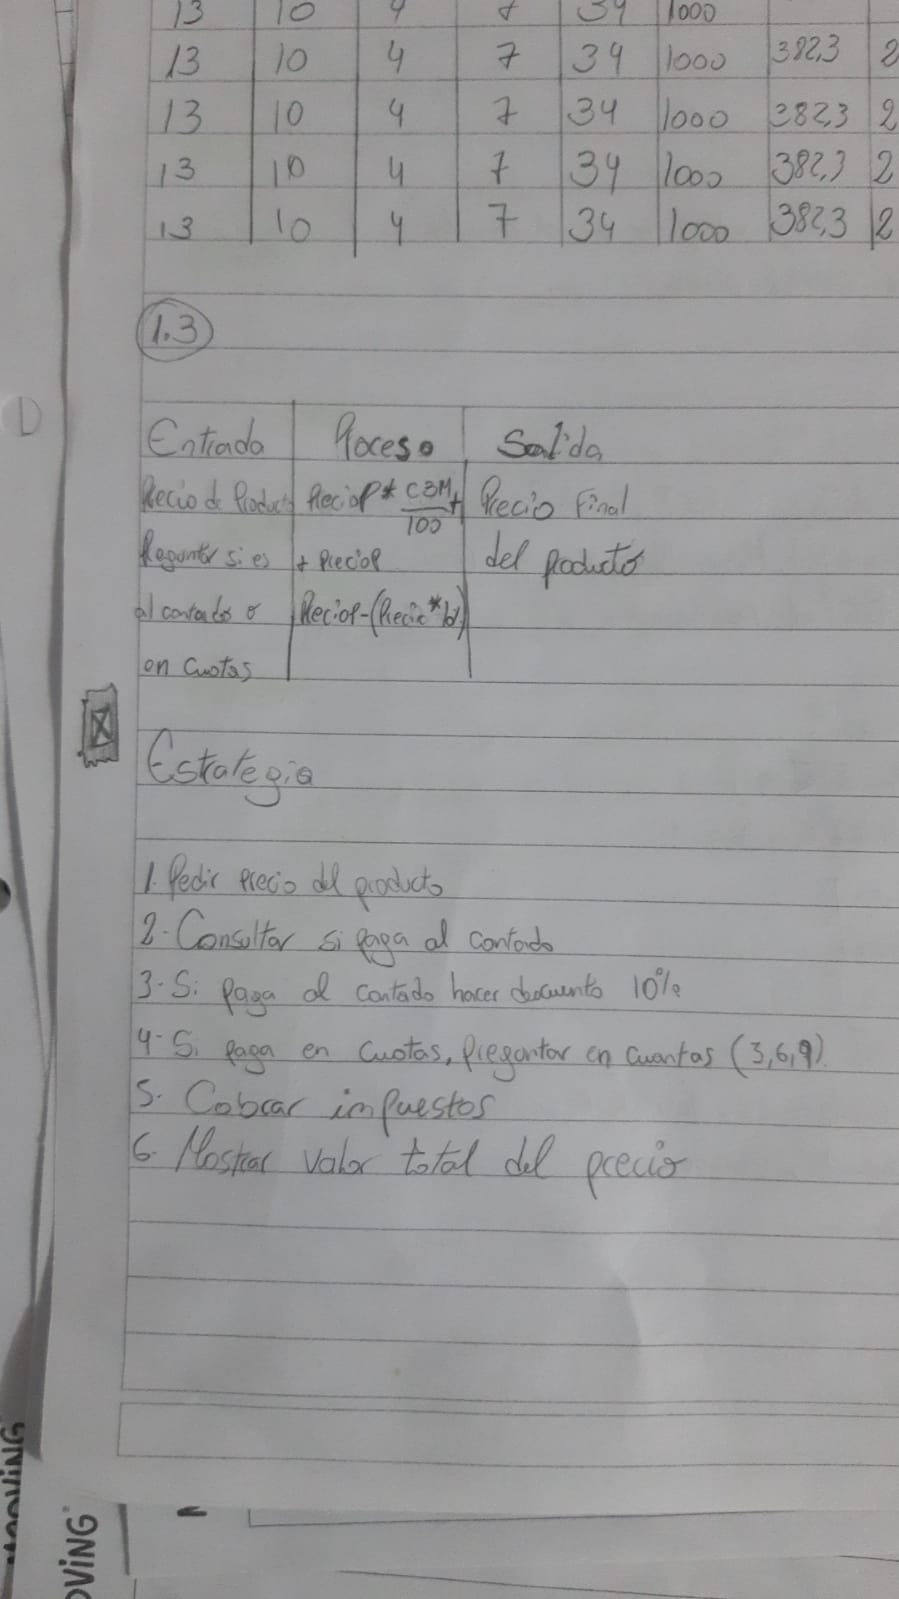 13 10 4 7 34 1000
13 10 4 7 34 1000 382,3 2
13 10 4 7 34 1000 382,3 2
13 10 4 7 34 1000 382,3 2
13 10 4 7 34 1000 382,3 2
1.3
Entrada Proceso Salida
Precio de Producto PrecioP * C3M/100 + Precio Final
Preguntar si es + PrecioP del producto
al contado o PrecioP-(Precio*
en cuotas
Estrategia
1. Pedir precio del producto
2- Consultar si paga al contado
3- Si paga al contado hacer descuento 10%
4- Si paga en cuotas, preguntar en cuantas (3,6,9)
5. Cobrar impuestos
6. Mostrar valor total del precio
OVING
MOOVING